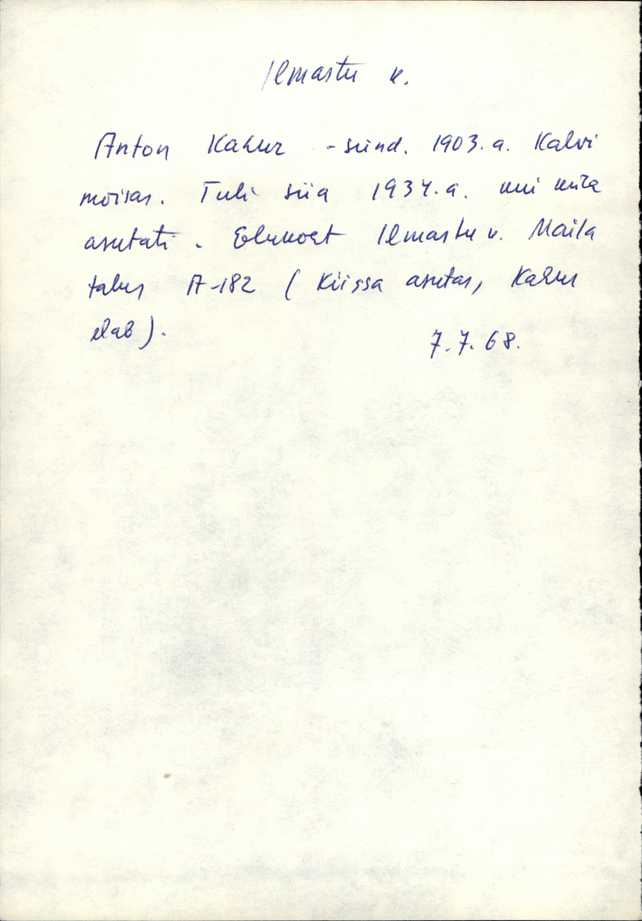 Ilmastu k.
Anton Kahur - sünd. 1903.a. Kalvi
mõisas. Tuli siia 1934.a. kui küla
asutati. Elukoht Ilmastu k. Maila
talus A-182 (Kiissa asutas, Kahur
elab).
7.7.68.